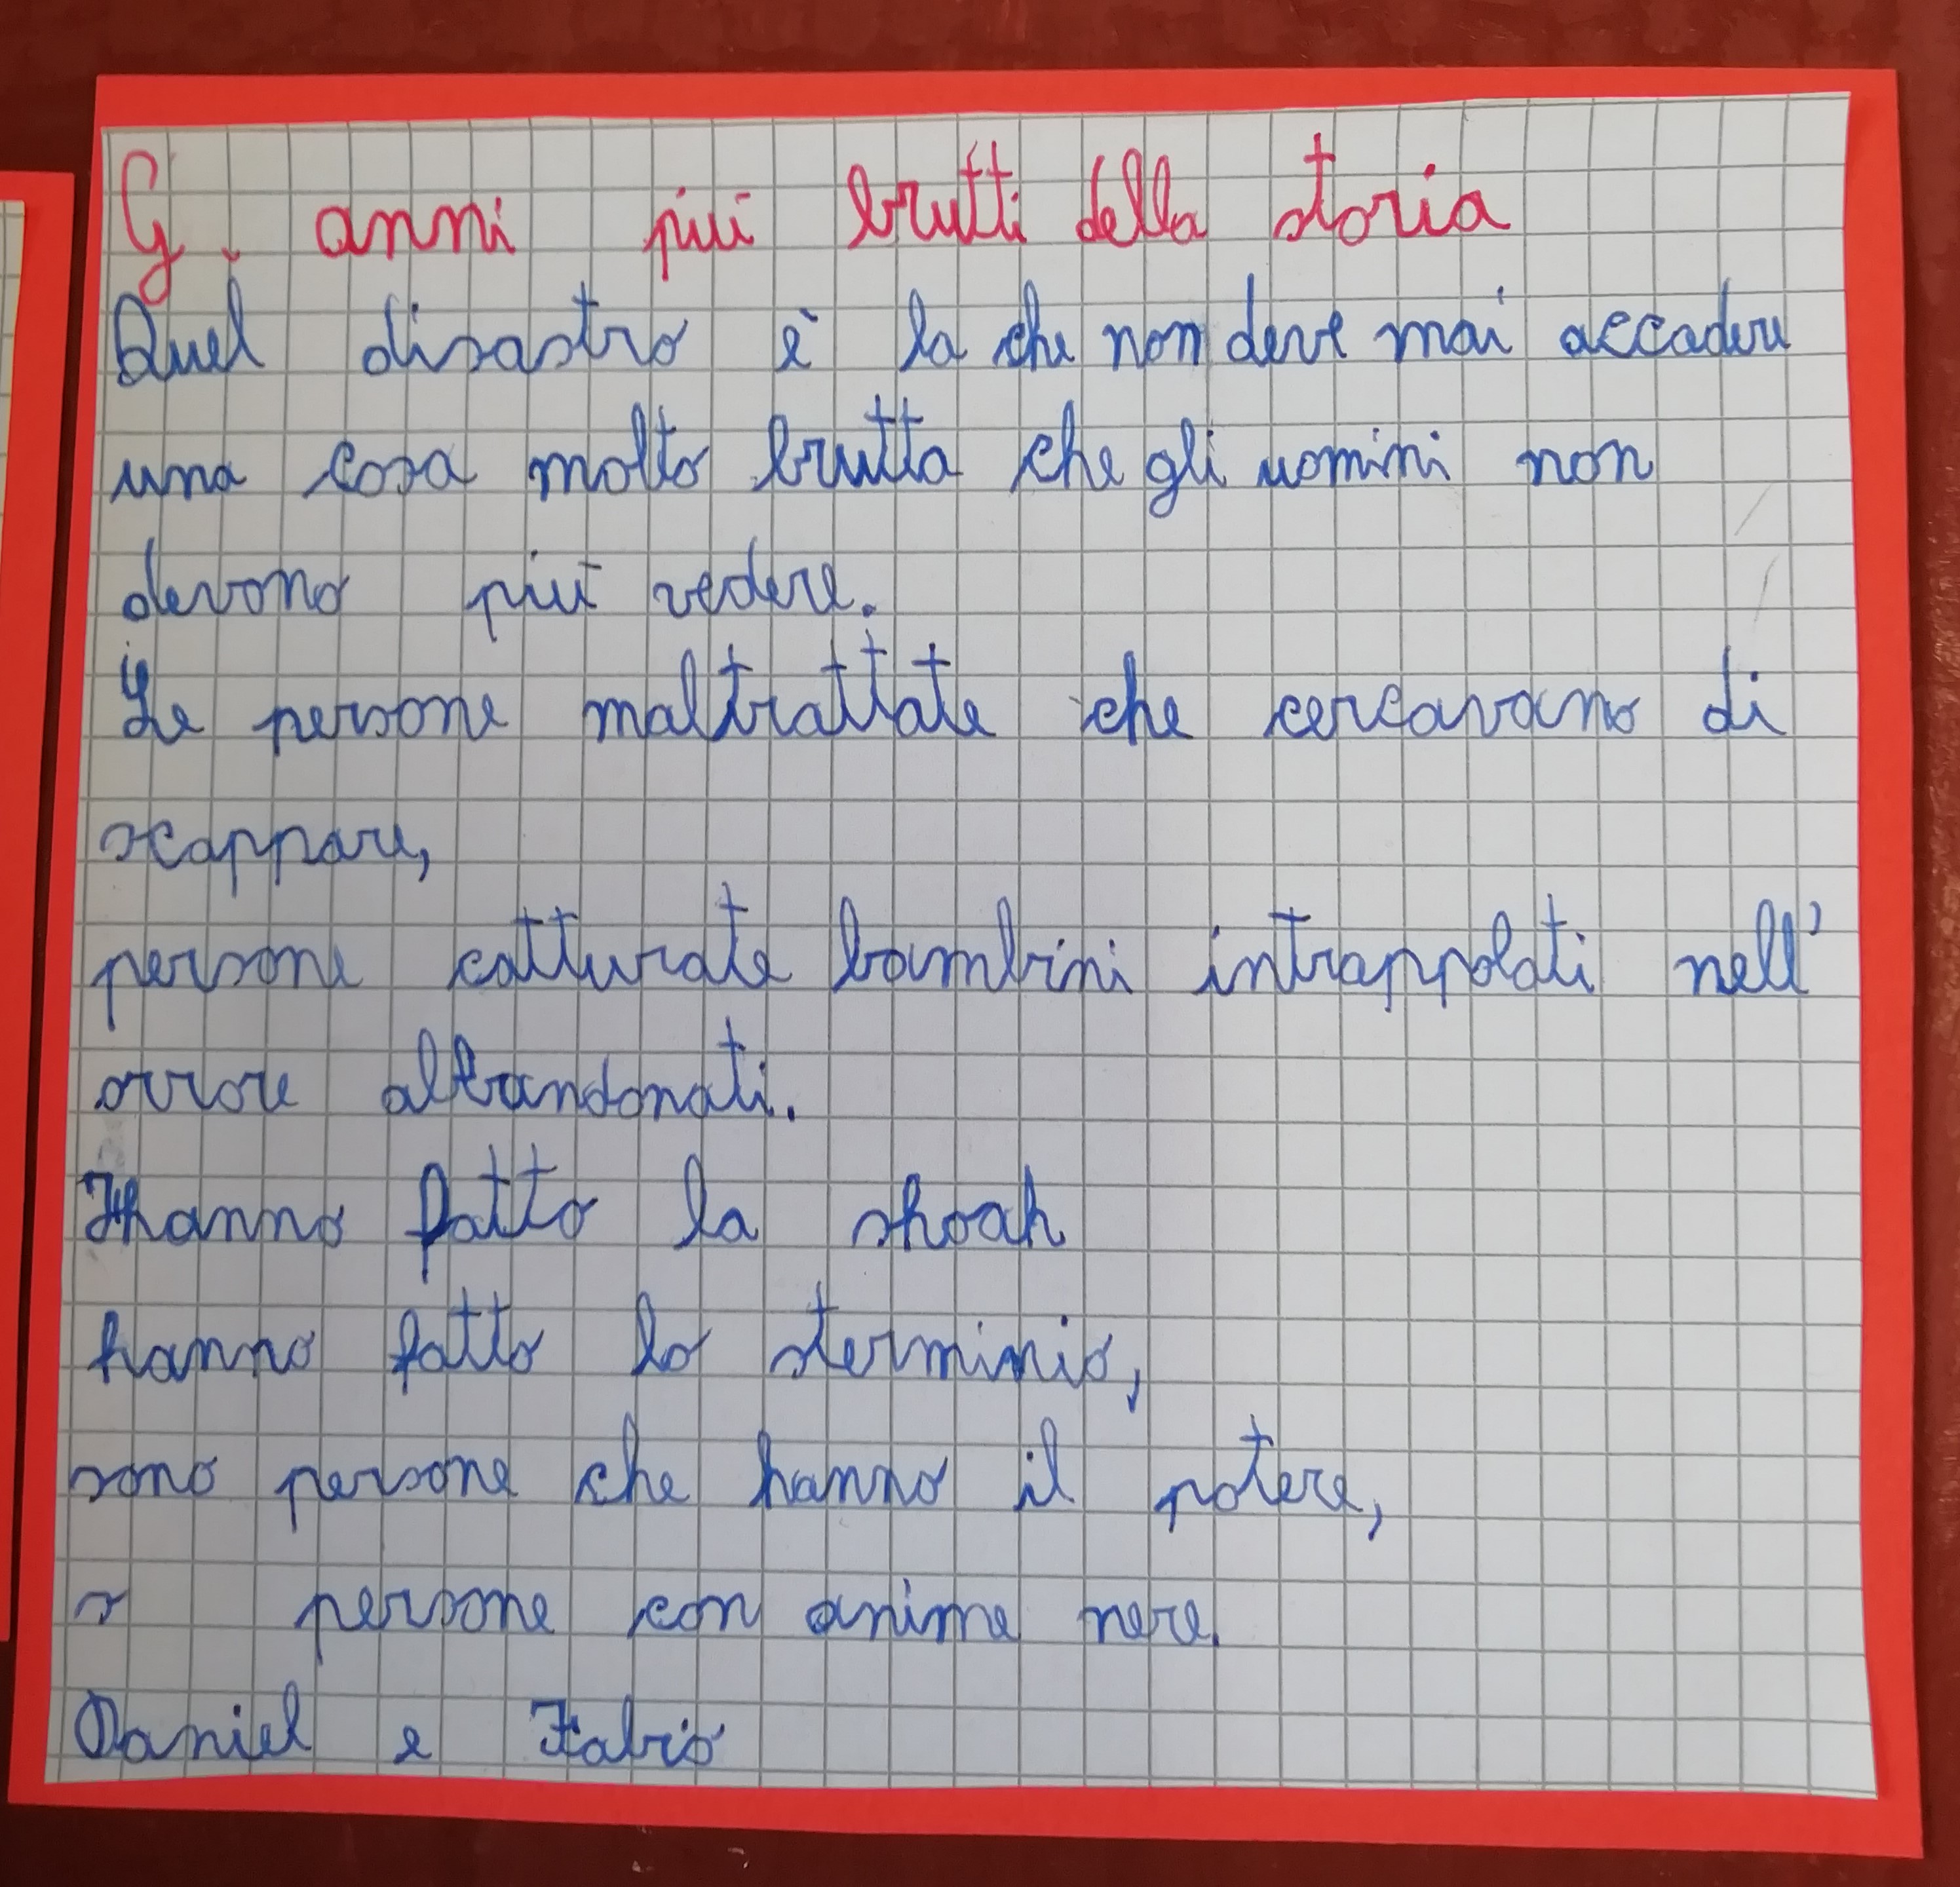 G. anni più brutti della storia
Quel disastro è la che non deve mai accadere
una cosa molto brutta che gli uomini non
devono più vedere.
Le persone maltrattate che cercavano di
scappare,
persone catturate bambini intrappolati nell'
orrore abbandonati.
Hanno fatto la shoah
hanno fatto lo sterminio,
sono persone che hanno il potere,
o persone con anime nere.
Daniel e Fabio